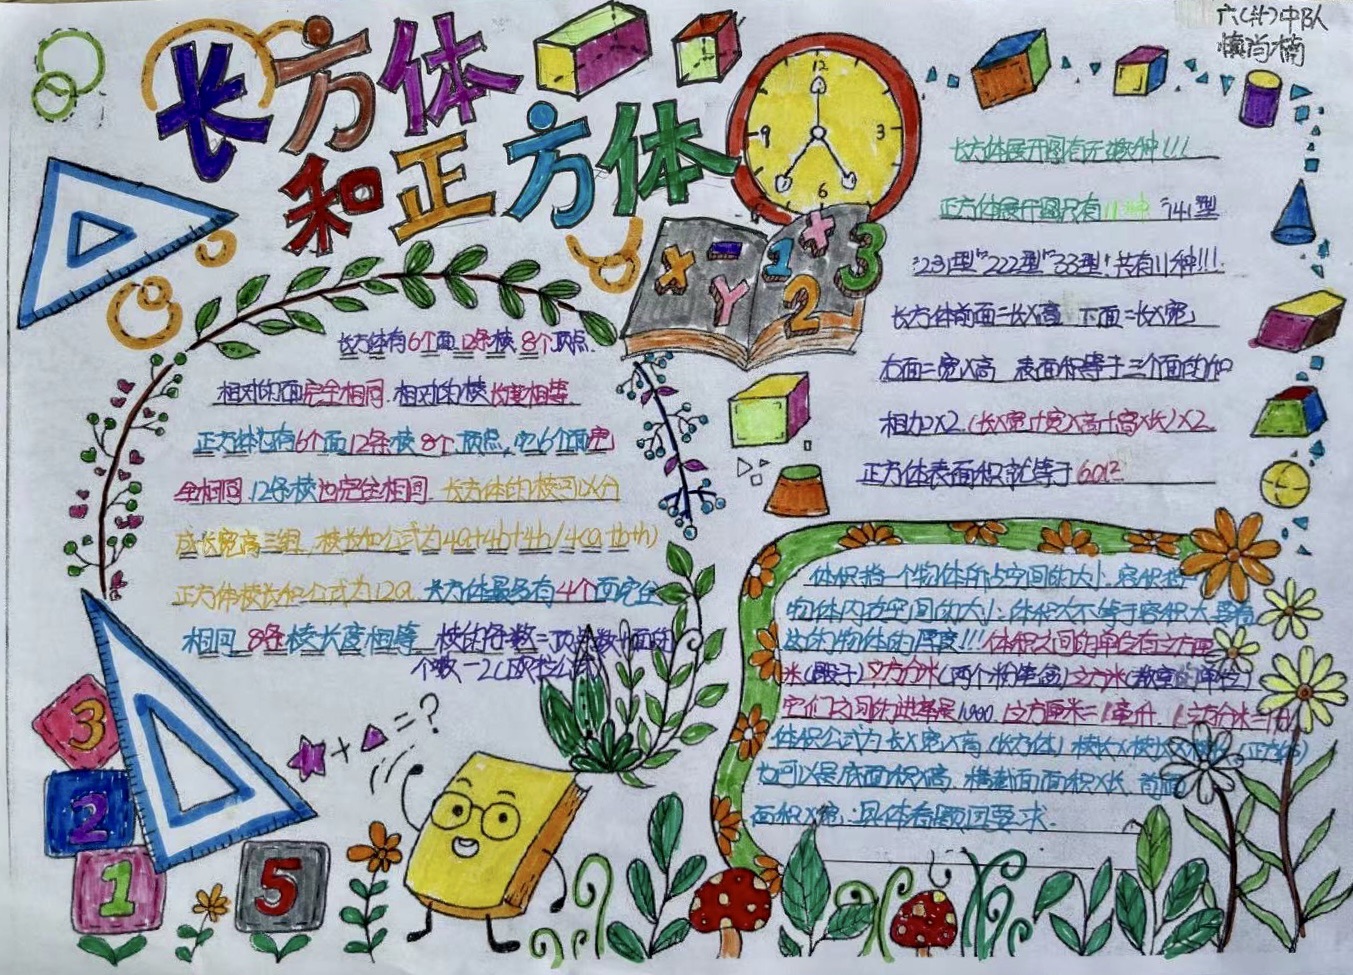 长方体
和正方体
六(廿)中队
慎尚楠
12
9
3
6
X - 1 X 3
Y 2
长方体有6个面12条棱8个顶点.
相对的面完全相同.相对的棱长度相等.
正方体也有6个面12条棱8个顶点,它6个面完
全相同.12条棱也完全相同.长方体的棱可以分
成长宽高三组.棱长和公式为4a+4b+4h/4(a+b+h)
正方体棱长和公式为12a.长方体最多有4个面完全
相同8条棱长度相等.棱的条数=顶点数+面的
个数-2(欧拉公式)
长方体展开图有无数种!!!
正方体展开图只有11种"141型
"231型""222型""33型"共有11种!!!
长方体前面=长X高 下面=长X宽
右面=宽X高 表面积等于三个面的和
相加X2.(长X宽+宽X高+高X长)X2
正方体表面积就等于6a²
体积指一个物体所占空间的大小.容积指
物体内在空间的大小.体积大不等于容积大.要看
这的物体的厚度!!!体积之间的单位有立方厘
米(骰子)立方分米(两个粉笔盒)立方米(教室的单位)
它们之间的进率是1000.1立方厘米=1毫升.1立方分米=1升
体积公式为长X宽X高(长方体)棱长X棱长X棱长(正方体)
也可以是底面积X高.横截面面积X长.前面
面积X宽.具体看题问要求.
3
2
1
5
+ = ?